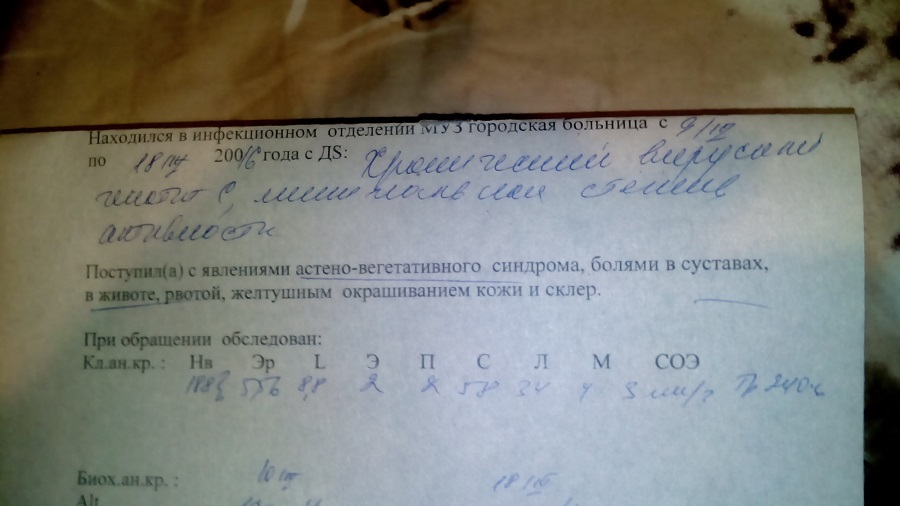 Находился в инфекционном отделении МУЗ городская больница с 9/III
по 18 IV 200/6 года с ДS: Хронический вирусный
гепатит С, минимальная степень
активности
Поступил(а) с явлениями астено-вегетативного синдрома, болями в суставах,
в животе, рвотой, желтушным окрашиванием кожи и склер.
При обращении обследован:
Кл.ан.кр. : Нв Эр L Э П С Л М СОЭ
8,8 2 2 58 34 4 3 мм/ч Тр 240
Биох.ан.кр. : 18 III
Alt